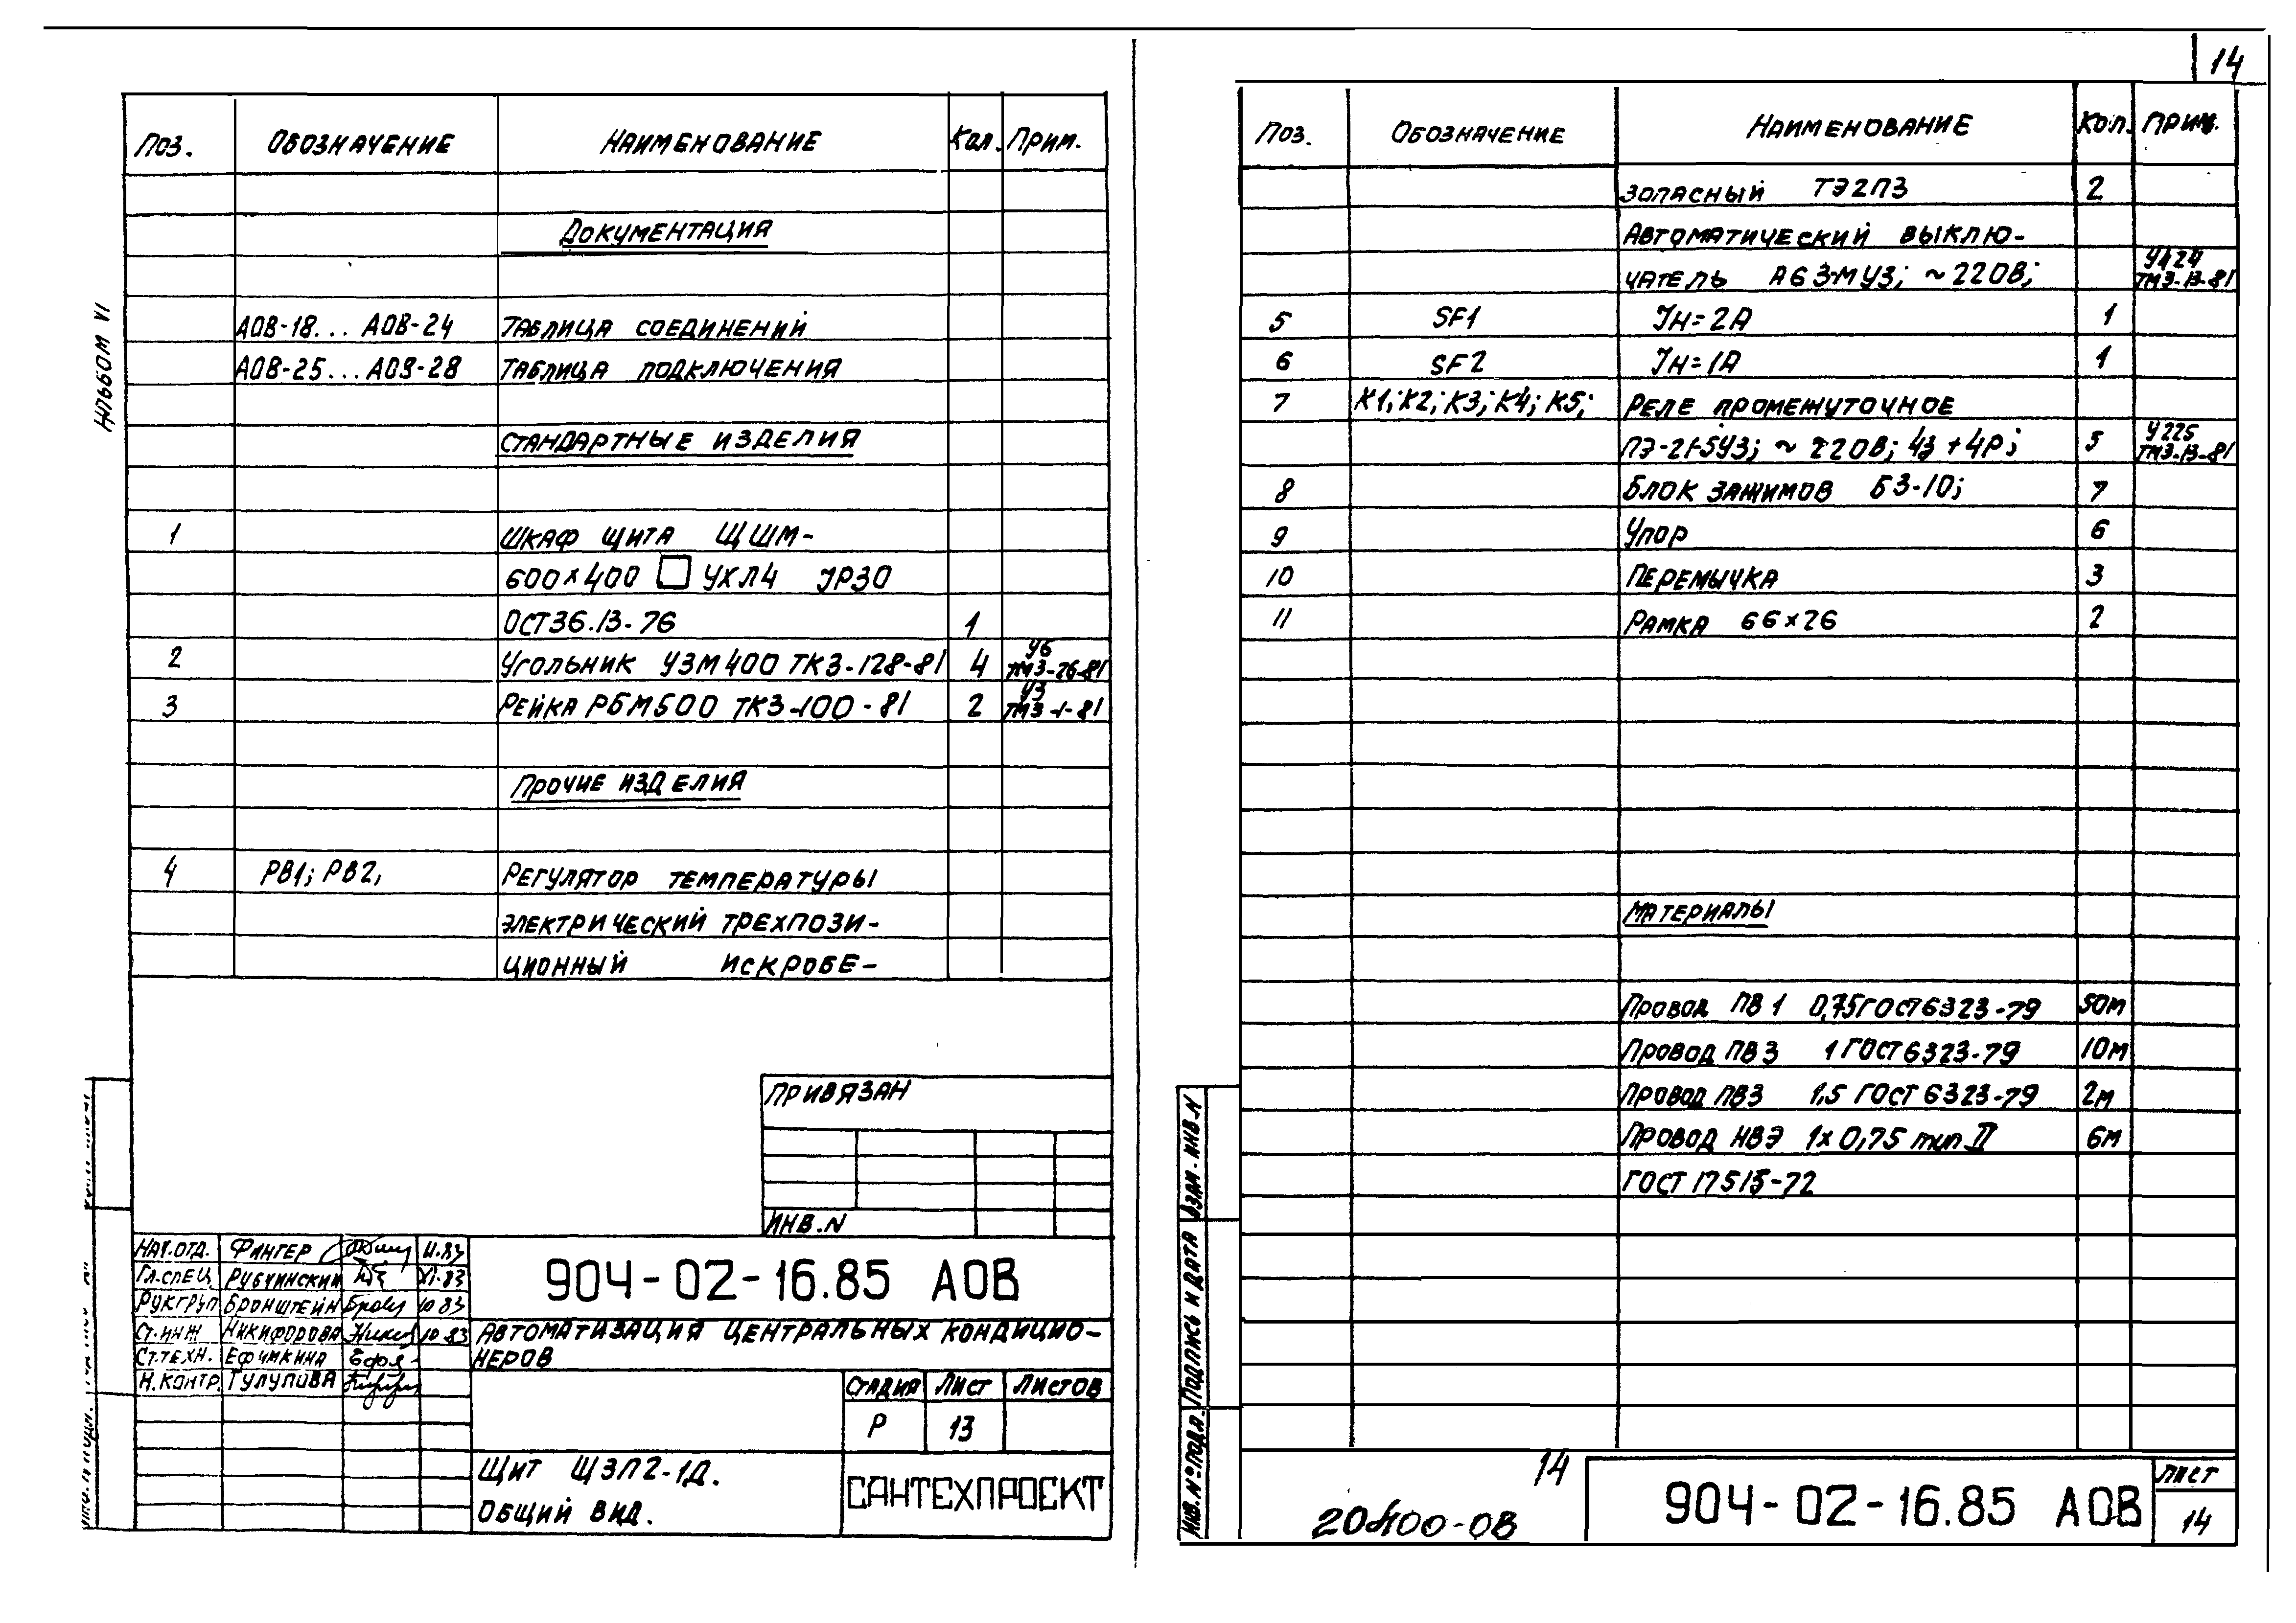 14
Альбом VI
Поз. Обозначение Наименование Кол. Прим.
Документация
АОВ-18... АОВ-24 Таблица соединений
АОВ-25... АОВ-28 Таблица подключения
Стандартные изделия
1 Шкаф щита ЩШМ-
600×400 □ УХЛ4 IP30
ОСТ36.13-76 1
2 Угольник УЗМ400 ТК3-128-81 4 У6 ТМ3-26-81
3 Рейка РБМ500 ТК3-100-81 2 У3 ТМ3-1-81
Прочие изделия
4 РВ1; РВ2, Регулятор температуры
электрический трехпози-
ционный искробе-
Привязан
Инв.N
Нач.отд. Фингер 11.83
Гл.спец. Рубчинский XI.83
Рук.груп Бронштейн 10 83
Ст.инж Никифорова 10 83
Ст.техн. Ефимкина
Н.контр. Тулупова
904-02-16.85 АОВ
Автоматизация центральных кондицио-
неров
Стадия Лист Листов
Р 13
Щит ЩЗП2-1Д.
Общий вид.
САНТЕХПРОЕКТ
Поз. Обозначение Наименование Кол. Прим.
запасный ТЭ2П3 2
Автоматический выклю-
чатель А63-МУ3; ~220В; У424 ТМ3-13-81
5 SF1 Iн=2А 1
6 SF2 Iн=1А 1
7 К1; К2; К3; К4; К5; Реле промежуточное
ПЭ-21-5У3; ~220В; 4з+4р; 5 У225 ТМ3-13-81
8 Блок зажимов БЗ-10; 7
9 Упор 6
10 Перемычка 3
11 Рамка 66×26 2
Материалы
Провод ПВ1 0,75 ГОСТ6323-79 50м
Провод ПВ3 1 ГОСТ6323-79 10м
Провод ПВ3 1,5 ГОСТ 6323-79 2м
Провод НВЭ 1×0,75 тип II 6м
ГОСТ 17515-72
Взам.инв.N
Подпись и дата
Инв.№подл.
14
20400-08
904-02-16.85 АОВ
Лист
14